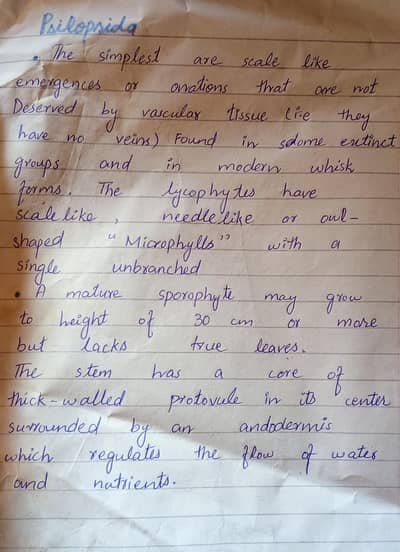 Psilopsida
• The simplest are scale like
emergences or ovations that are not
Deserved by vascular tissue (ie they
have no veins) Found in sdome extinct
groups and in modern whisk
forms. The lycophytes have
scale like, needle like or owl-
shaped "Microphylls" with a
single unbranched
• A mature sporophyte may grow
to height of 30 cm or more
but lacks true leaves.
The stem has a core of
thick-walled protovule in its center
surrounded by an andodermis
which regulates the flow of water
and nutrients.